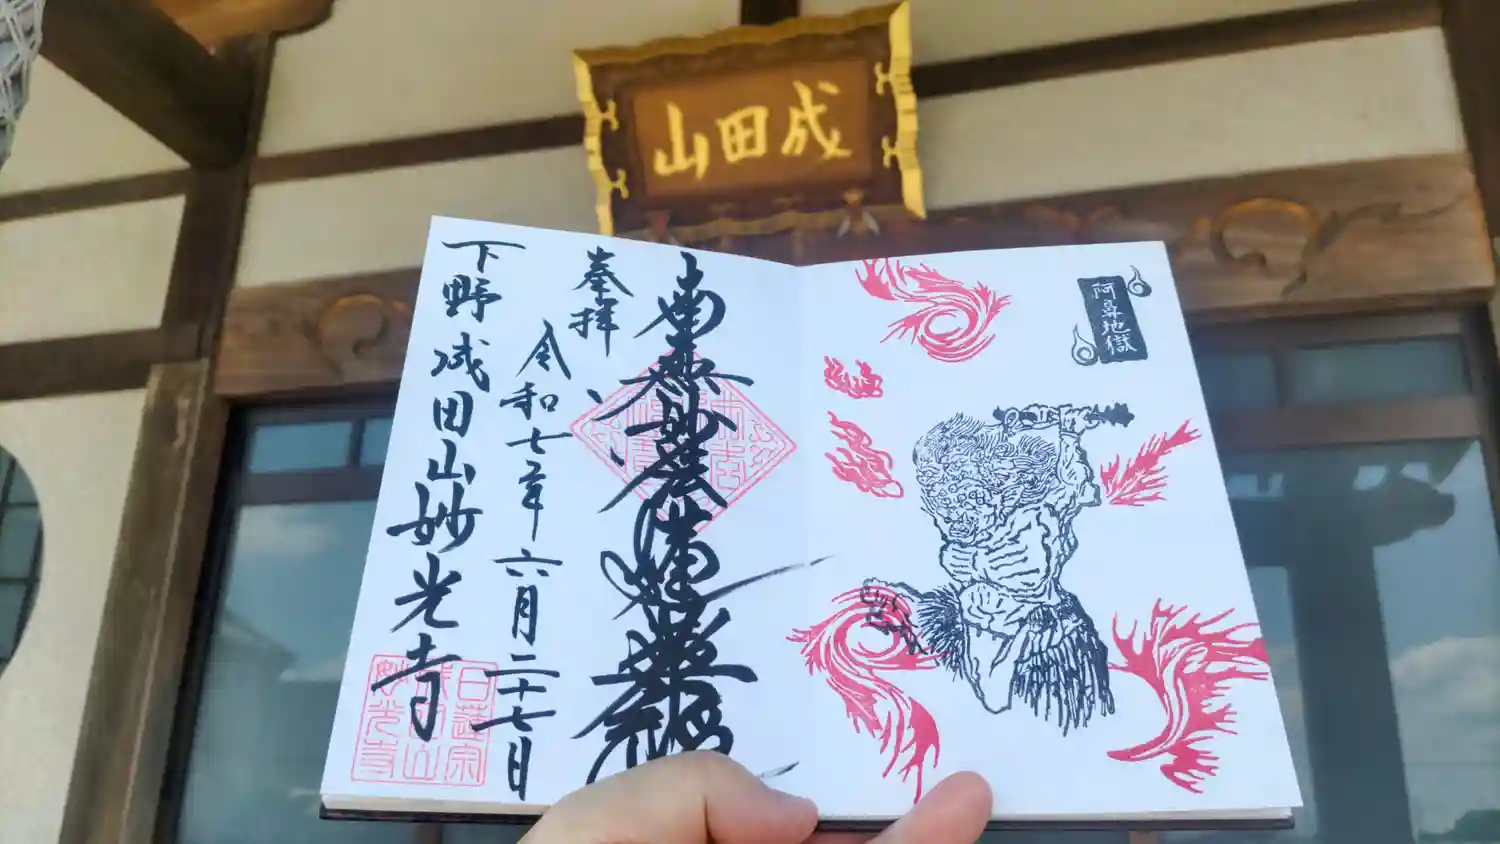 成田山
阿鼻地獄
南無妙法蓮華経
奉拝
令和七年六月二十七日
下野成田山妙光寺
日蓮宗
成田山
妙光寺